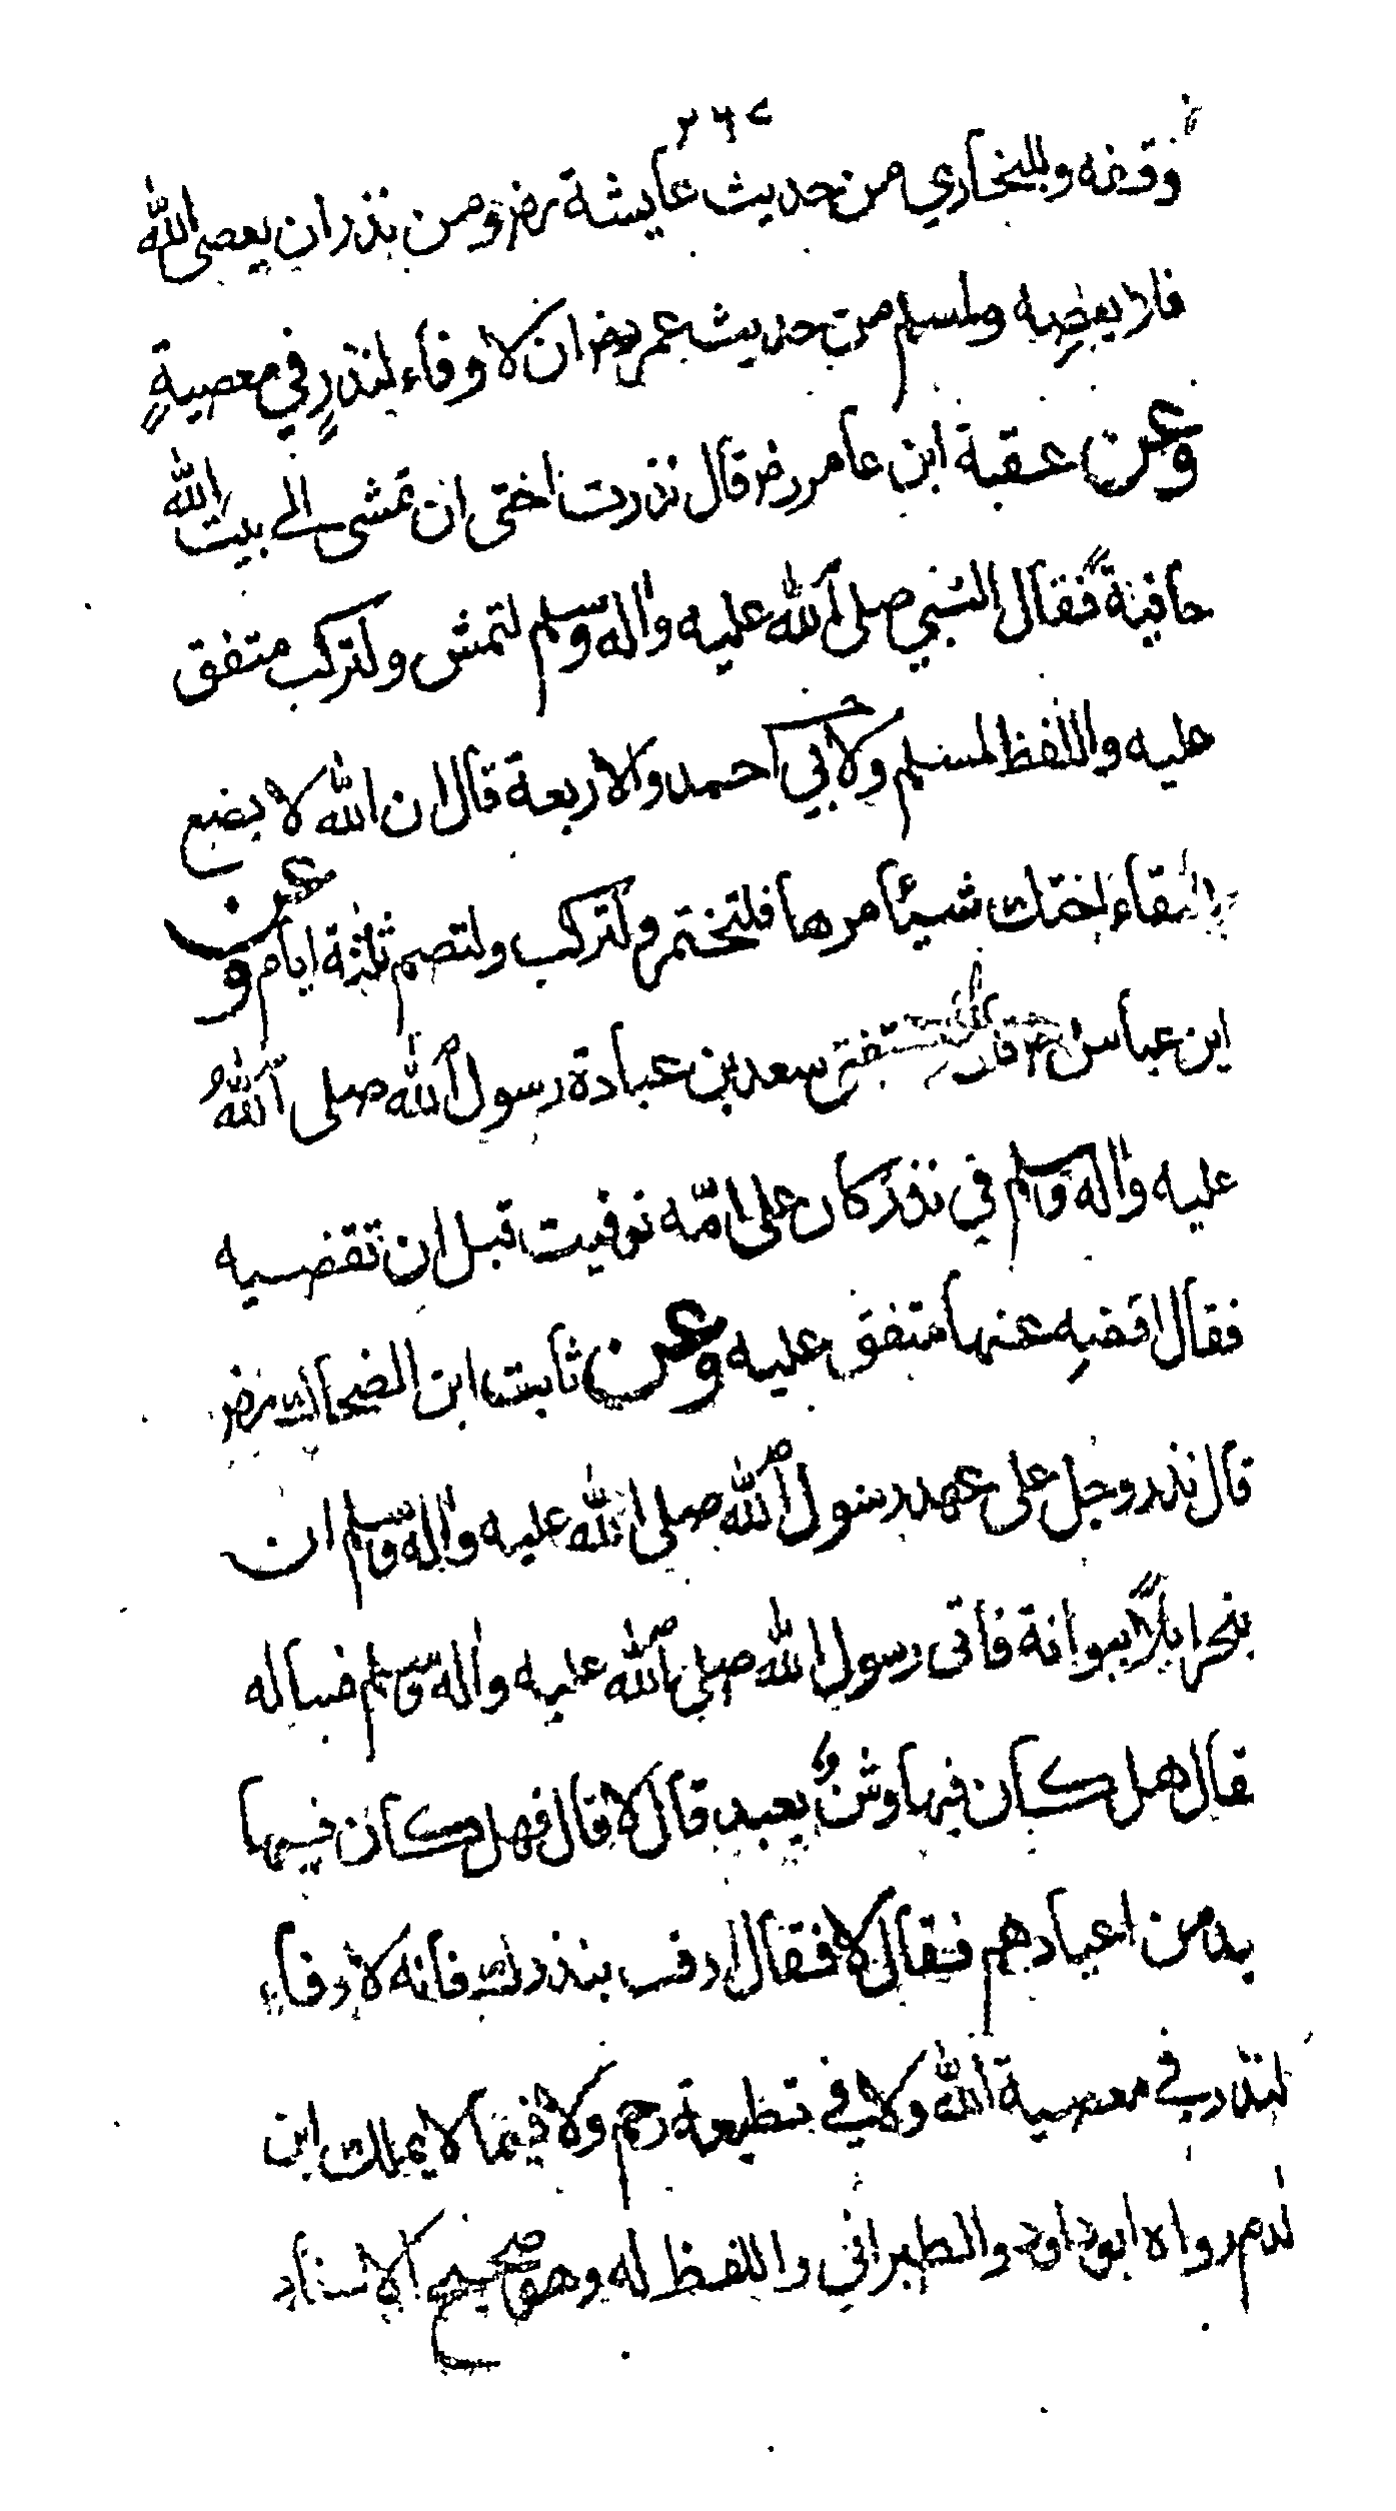 ٢٦٢
وقفه وللبخاري من حديث عايشة رضر ومن نذر ان يعصى الله
فلا يعصِهِ ولمسلم من حديث عمر رضر ان لا وفاء لنذرٍ في معصيةٍ
وعن عقبة ابن عامر رضر قال نذرت اختى ان تمشى الى بيت الله
حافيةً فقال النبي صلى الله عليه واله وسلم لتمش ولتركب متفق
عليه واللفظ لمسلم ولابي احمد والاربعة قال ان الله لا يصنع
بشقاء اختك شيئا مرها فلتختمر ولتركب ولتصم ثلثة ايام وعن
ابن عباس رضر قال استفتى سعد بن عبادة رسول الله صلى اللهُ
عليه واله وسلم في نذر كان على امّه توفيت قبل ان تقضيه
فقال اقضِهِ عنها متفق عليه وعن ثابت ابن الضحاك رضر
قال نذر رجل على عهد رسول الله صلى الله عليه واله وسلم ان
ينحر ابلاً ببوانة فاتى رسول الله صلى الله عليه واله وسلم فساله
فقال هل كان فيها وثنٌ يعبد قال لا قال فهل كان فيها
عيد من اعيادهم فقال لا فقال اوف بنذرك فانه لا وفاء
لنذر في معصية الله ولا في قطيعة رحم ولا فيما لا يملك ابن
ادم رواه ابو داود والطبراني واللفظ له وهو صحيح الاسناد